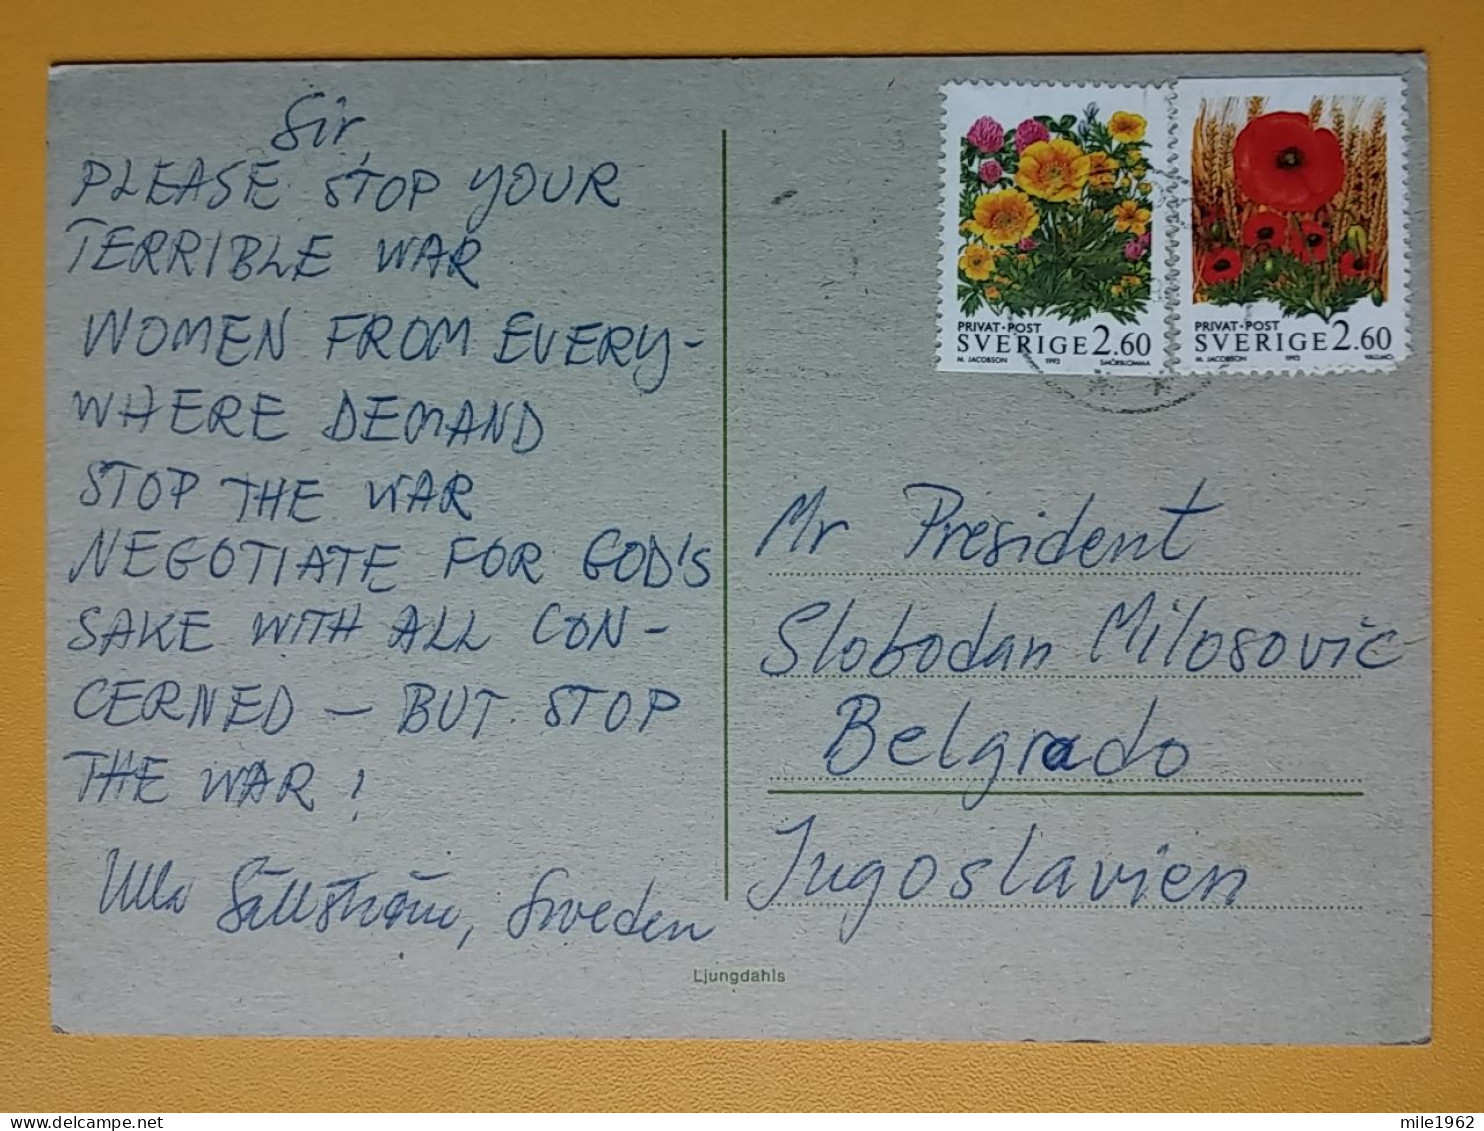 Sir,
PLEASE STOP YOUR
TERRIBLE WAR
WOMEN FROM EVERY-
WHERE DEMAND
STOP THE WAR
NEGOTIATE FOR GOD'S
SAKE WITH ALL CON-
CERNED — BUT STOP
THE WAR!
Ulla Sällström, Sweden
PRIVAT·POST
SVERIGE 2.60
M. JACOBSON 1993 SMÖRBLOMMA
PRIVAT·POST
SVERIGE 2.60
M. JACOBSON 1993 VALLMO
Mr President
Slobodan Milosovic
Belgrado
Jugoslavien
Ljungdahls
mile1962